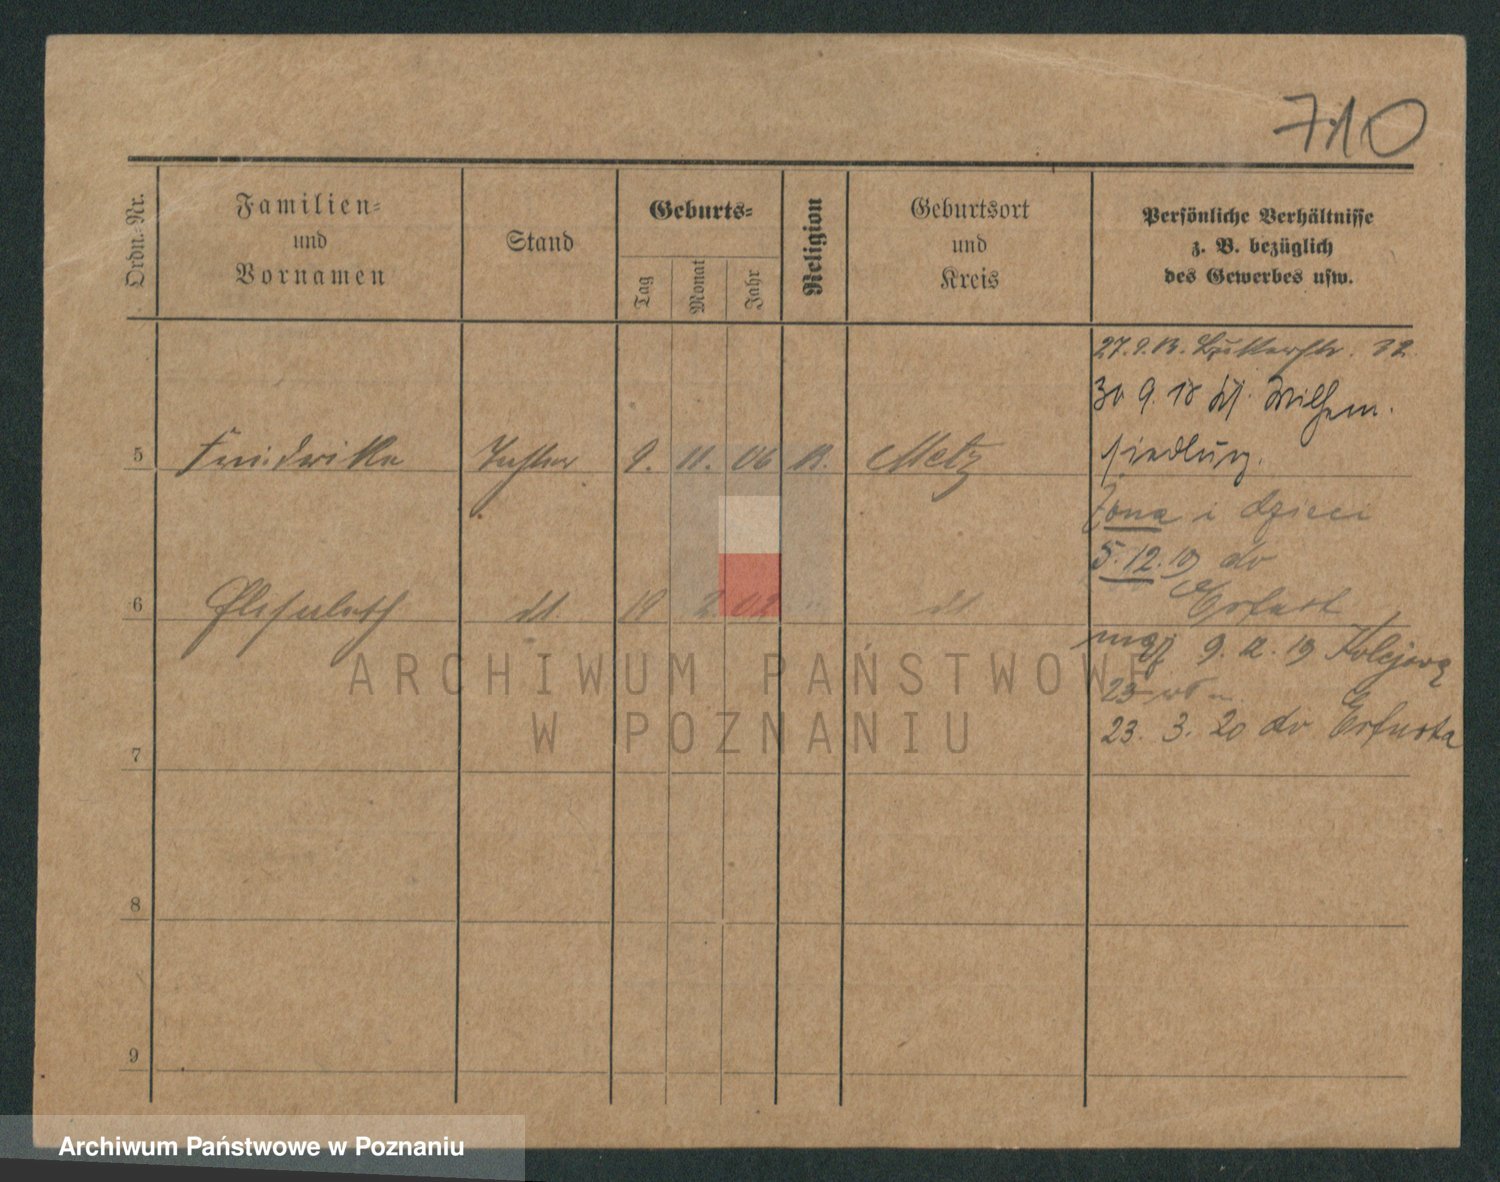 710
Ordn.-Nr.
Familien-
und
Vornamen
Stand
Geburts-
Tag
Monat
Jahr
Religion
Geburtsort
und
Kreis
Persönliche Verhältnisse
z. B. bezüglich
des Gewerbes usw.
27. 9. 13. 32.
30 9. 18 Wilhem.
siedlung.
5 Friedrike Tochter 9. 11. 06 Metz
Żona i dzieci
5. 12. 19 do
Erfurt
6 dt. 19 2. 02 " dt.
9. 12. 19 Kolejową
23
23. 3. 20 do Erfurta
7
8
9
ARCHIWUM PAŃSTWOWE
W POZNANIU
Archiwum Państwowe w Poznaniu